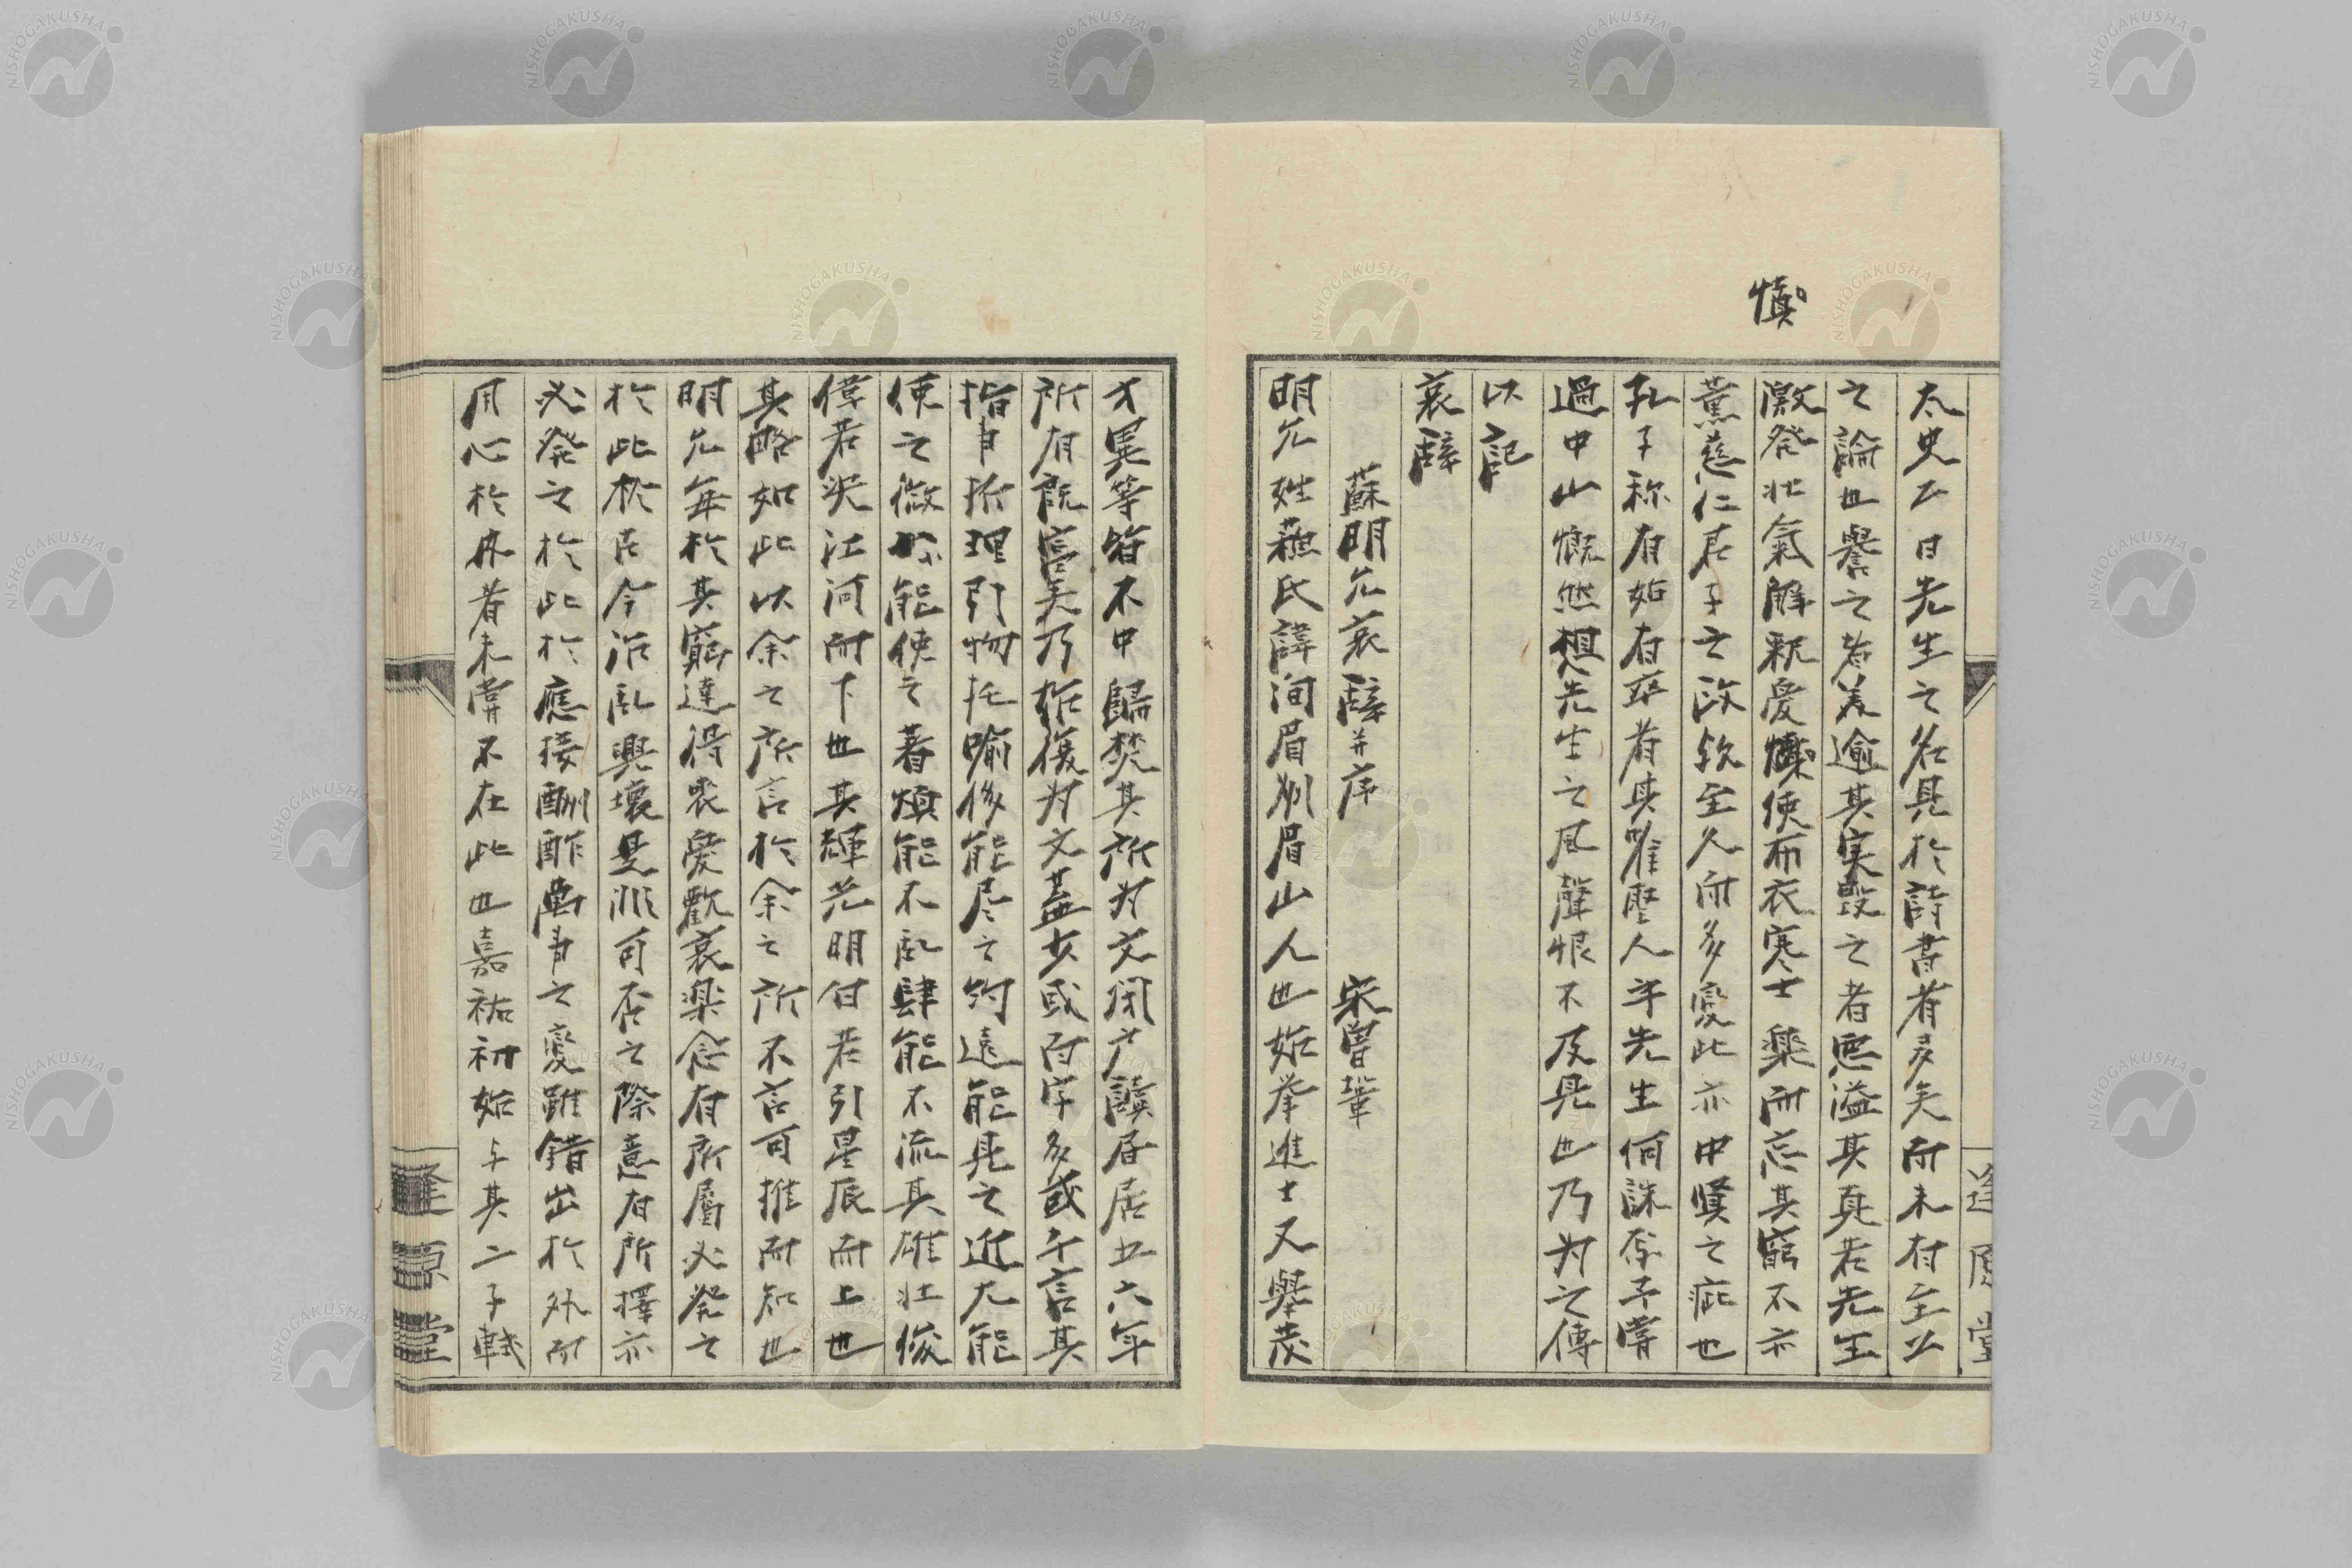 慎
太史公曰先生之名見於詩書者多矣而未有至公
之論也譽之者美逾其実毀之者悪溢其真若先生
激発壮氣解釈憂懆使布衣寒士楽而忘其窮不亦
薫慈仁君子之政欤至久而多変此亦中賢之疵也
孔子称有始有卒者其唯聖人乎先生何誅焉予嘗
過中山慨然想先生之風聲恨不及見也乃为之傳
以記
哀辞
蘇明允哀辞并序 宋曽鞏
明允姓蘇氏諱洵眉州眉山人也始挙進士又舉茂
才異等皆不中歸焚其所为文閉戸讀書居五六年
所有既富矣乃始復为文蓋少或百字多或千言其
指事折理引物托喩侈能尽之約遠能見之近大能
使之微小能使之著煩能不乱肆能不流其雄壮俊
偉若決江河而下也其輝光明白若引星辰而上也
其略如此以余之所言於余之所不言可推而知也
明允毎於其窮達得喪憂歡哀楽念有所属必発之
於此於古今治乱興壊是非可否之際意有所擇亦
必発之於此於應接酬酢萬事之変雖錯出於外而
用心於内者未嘗不在此也嘉祐初始与其二子軾
逢原堂
逢原堂
NISHOGAKUSHA